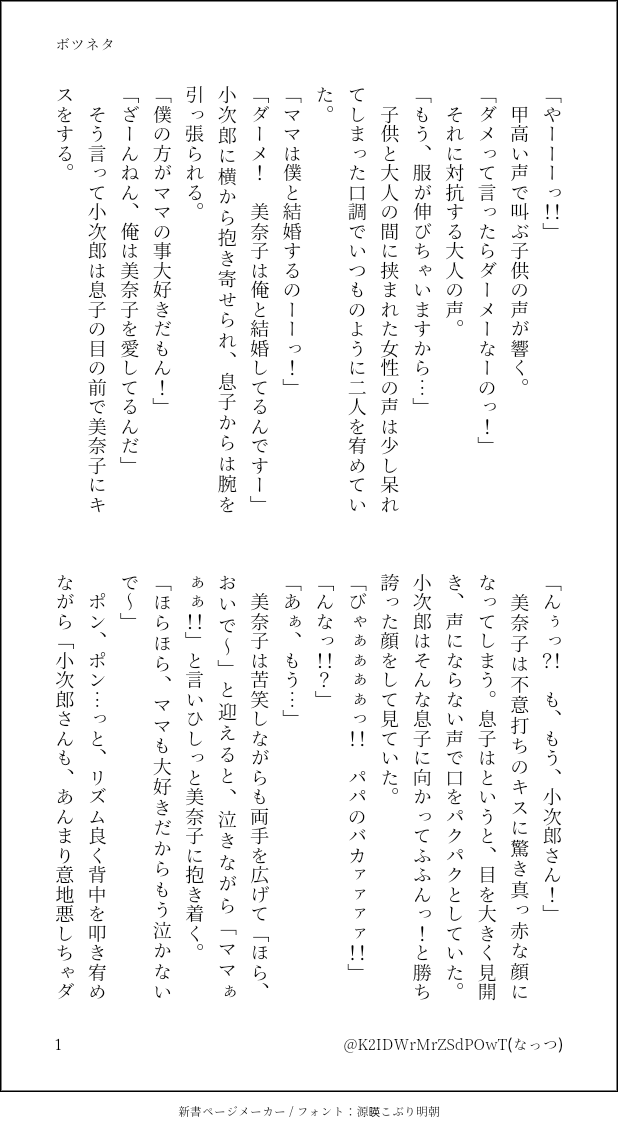 ボツネタ
「やーーーっ!!」
　甲高い声で叫ぶ子供の声が響く。
「ダメって言ったらダーメーなーのっ！」
　それに対抗する大人の声。
「もう、服が伸びちゃいますから…」
　子供と大人の間に挟まれた女性の声は少し呆れ
てしまった口調でいつものように二人を宥めてい
た。
「ママは僕と結婚するのーーっ！」
「ダーメ！　美奈子は俺と結婚してるんですー」
小次郎に横から抱き寄せられ、息子からは腕を
引っ張られる。
「僕の方がママの事大好きだもん！」
「ざーんねん、俺は美奈子を愛してるんだ」
　そう言って小次郎は息子の目の前で美奈子にキ
スをする。
「んぅっ?!　も、もう、小次郎さん！」
　美奈子は不意打ちのキスに驚き真っ赤な顔に
なってしまう。息子はというと、目を大きく見開
き、声にならない声で口をパクパクとしていた。
小次郎はそんな息子に向かってふふんっ！と勝ち
誇った顔をして見ていた。
「びゃぁぁぁぁっ!!　パパのバカァァァァ!!」
「んなっ!!?」
「あぁ、もう…」
　美奈子は苦笑しながらも両手を広げて「ほら、
おいで〜」と迎えると、泣きながら「ママぁ
ぁぁ!!」と言いひしっと美奈子に抱き着く。
「ほらほら、ママも大好きだからもう泣かない
で〜」
　ポン、ポン…っと、リズム良く背中を叩き宥め
ながら「小次郎さんも、あんまり意地悪しちゃダ
1
@K2IDWrMrZSdPOwT(なっつ)
新書ページメーカー / フォント：源暎こぶり明朝